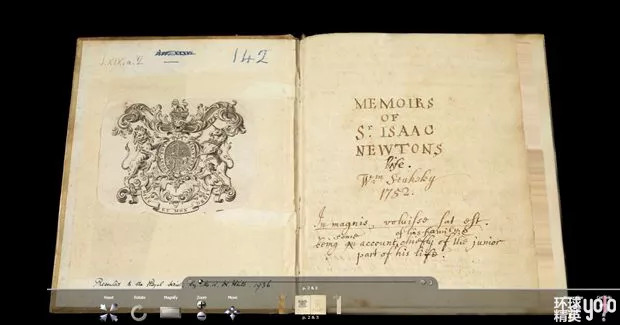 LXIX.a.2
142
ET MON
Presented to the Royal Society by 1936
MEMOIRS
OF
Sr. ISAAC
NEWTONS
life.
Wm. Stukely
1752.
In magnis, voluisse sat est.
being some account, of his family &
chiefly of the junior
part of his life.
p.2 & 3
Reset
Rotate
Magnify
Zoom
Move
p.2 & 3
环球
精英
yoyo